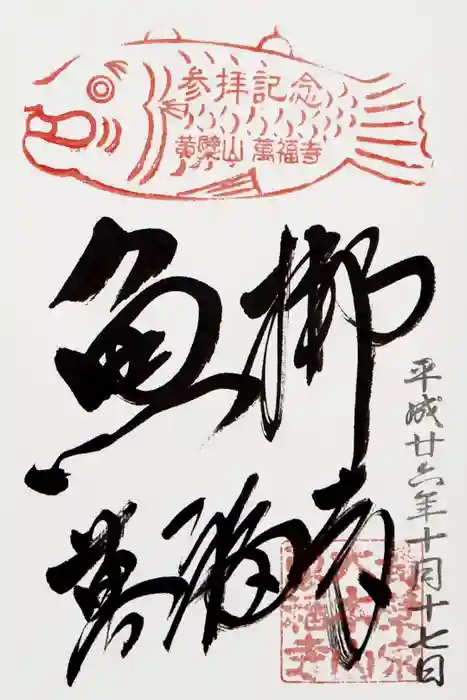 参拝記念
黄檗山 萬福寺
魚梆
萬福寺
平成廿六年十月十七日